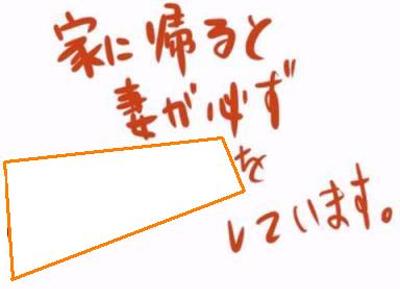 家に帰ると
妻が必ず
を
しています。